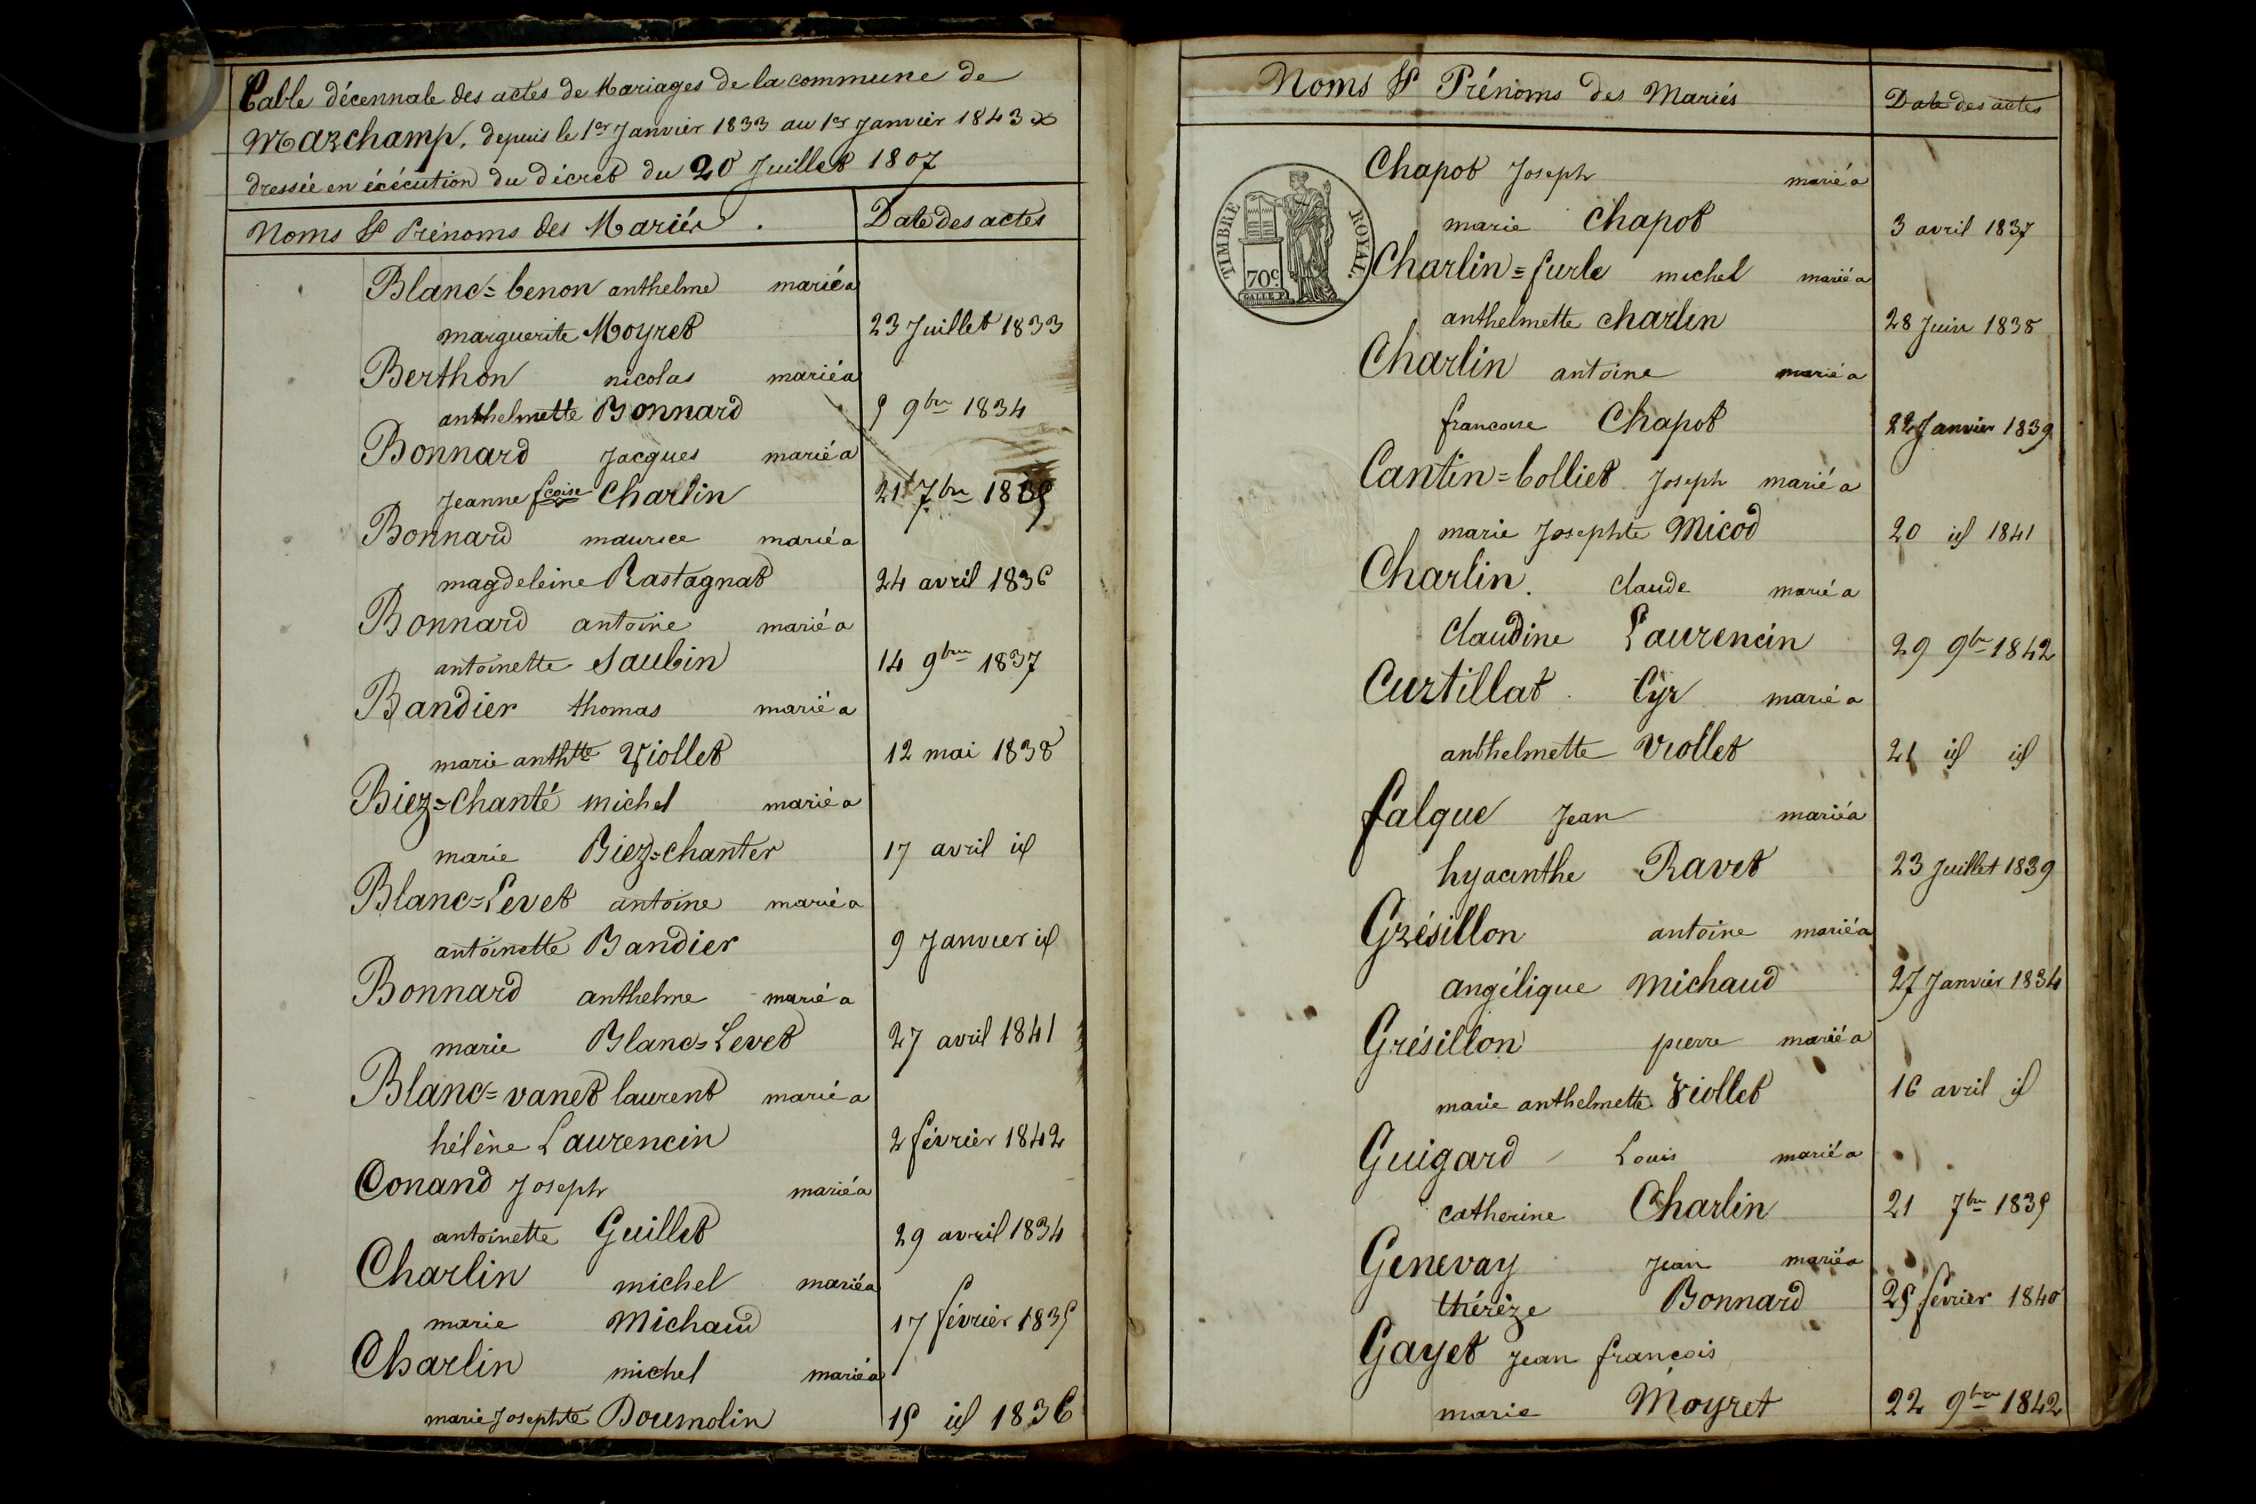 Table décennale des actes de Mariages de la commune de
Marchamp, depuis le 1er Janvier 1833 au 1er Janvier 1843
dressée en éxécution du décret du 20 Juillet 1807
Noms & Prénoms des Mariés. Date des actes
Blanc=benon anthelme marié a
marguerite Moyret 23 Juillet 1833
Berthon nicolas marié a
anthelmette Bonnard 5 9bre 1834
Bonnard Jacques marié a
Jeanne fcoise Charlin 21 7bre 1835
Bonnard maurice marié a
magdeleine Rastagnat 24 avril 1836
Bonnard antoine marié a
antoinette Saubin 14 9bre 1837
Bandier thomas marié a
marie anthtte Viollet 12 mai 1838
Biez=Chanté michel marié a
marie Biez=chanter 17 avril id
Blanc=Levet antoine marié a
antoinette Bandier 9 Janvier id
Bonnard anthelme marié a
marie Blanc=Levet 27 avril 1841
Blanc=vanet laurent marié a
hélène Laurencin 2 février 1842
Conand Joseph marié a
antoinette Guillet 29 avril 1834
Charlin michel marié a
marie Michaud 17 février 1835
Charlin michel marié a
marie Josephte Doumolin 15 id 1836
Noms & Prénoms des Mariés Date des actes
TIMBRE ROYAL.
70c.
Chapot Joseph marié a
marie Chapot 3 avril 1837
Charlin=furle michel marié a
anthelmette charlin 28 Juin 1838
Charlin antoine marié a
francoise Chapot 22 Janvier 1839
Cantin=Colliet Joseph marié a
marie Josephte Micod 20 id 1841
Charlin. Claude marié a
Claudine Laurencin 29 9bre 1842
Curtillat Cyr marié a
anthelmette Viollet 21 id id
falque Jean marié a
hyacinthe Ravet 23 Juillet 1839
Grésillon antoine marié a
angélique Michaud 27 Janvier 1834
Grésillon pierre marié a
marie anthelmette Viollet 16 avril id
Guigard Louis marié a
catherine Charlin 21 7bre 1835
Genevay Jean marié a
thérèze Bonnard 25 février 1840
Gayet Jean françois
marie Moyret 22 9bre 1842